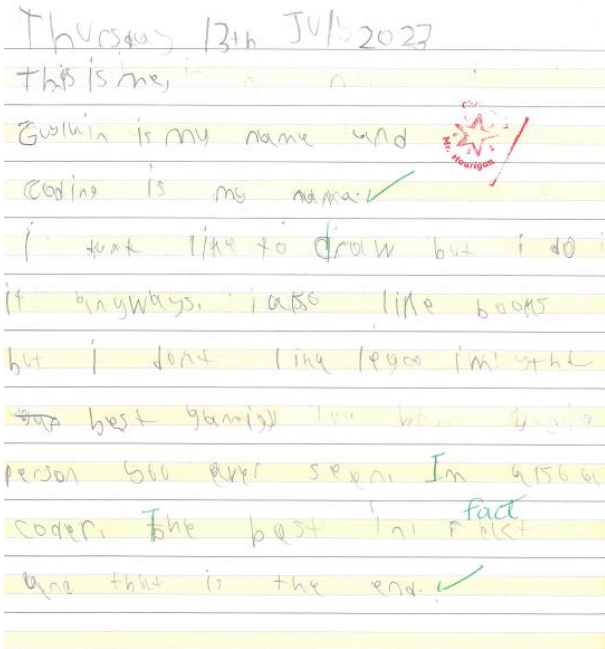 Thursday 13th July 2023
This is me,
is my name and
Mr. Hourigan
coding is my
i like to draw but i do
it anyways. i also like books
but i dont like legco im the
best
person you ever seen. Im also a
coder. The best in fact
and that is the end.